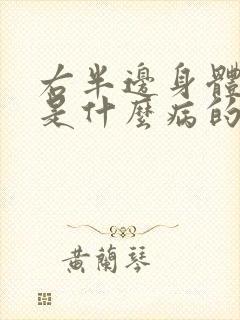 右半邊身體
是什麼病的
黃蘭琴